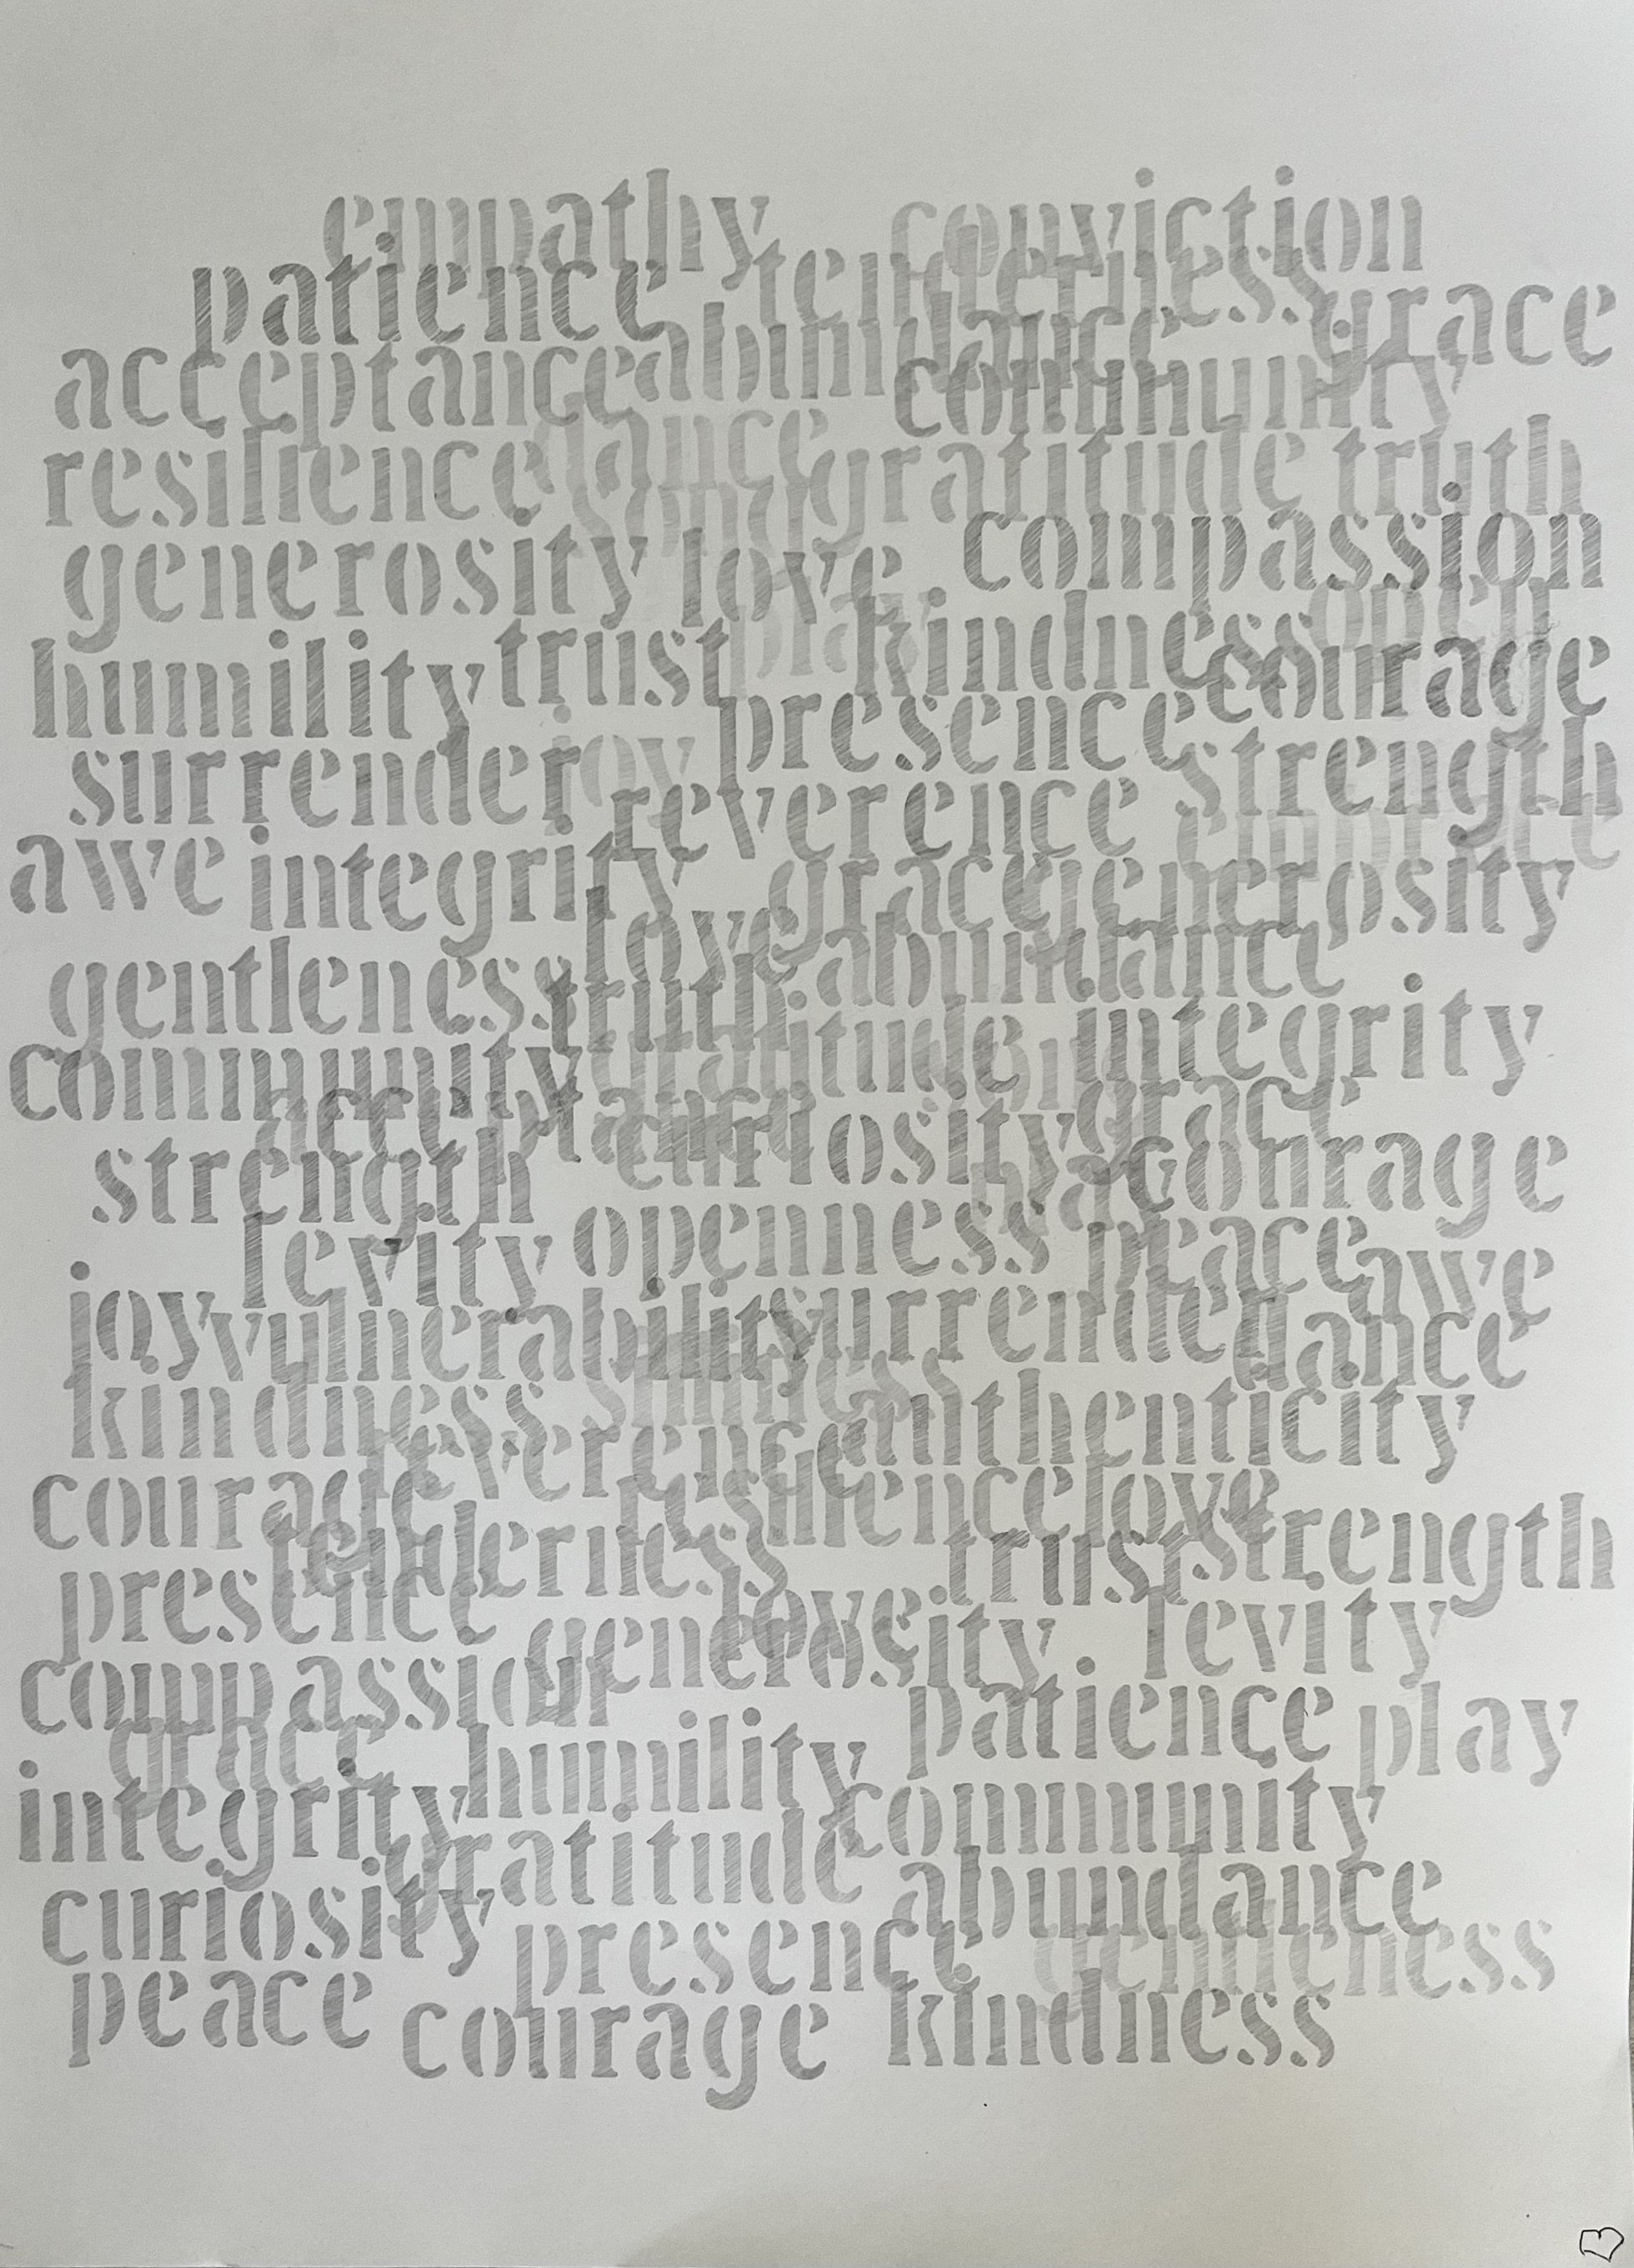 empathy conviction
patience tenderness
grace
acceptance abundance community
resilience dance gratitude truth
song
generosity love compassion
play open
humility trust kindness courage
surrender joy presence strength
reverence embrace
awe integrity grace generosity
gentleness love abundance
truth
community gratitude integrity
acceptance curiosity grace
strength courage
levity openness peace awe
joy vulnerability surrender dance
kindness authenticity
reverence
courage resilience love strength
tenderness trust
presence love levity
generosity
compassion patience play
grace humility
integrity community
gratitude abundance
curiosity presence gentleness
peace courage kindness